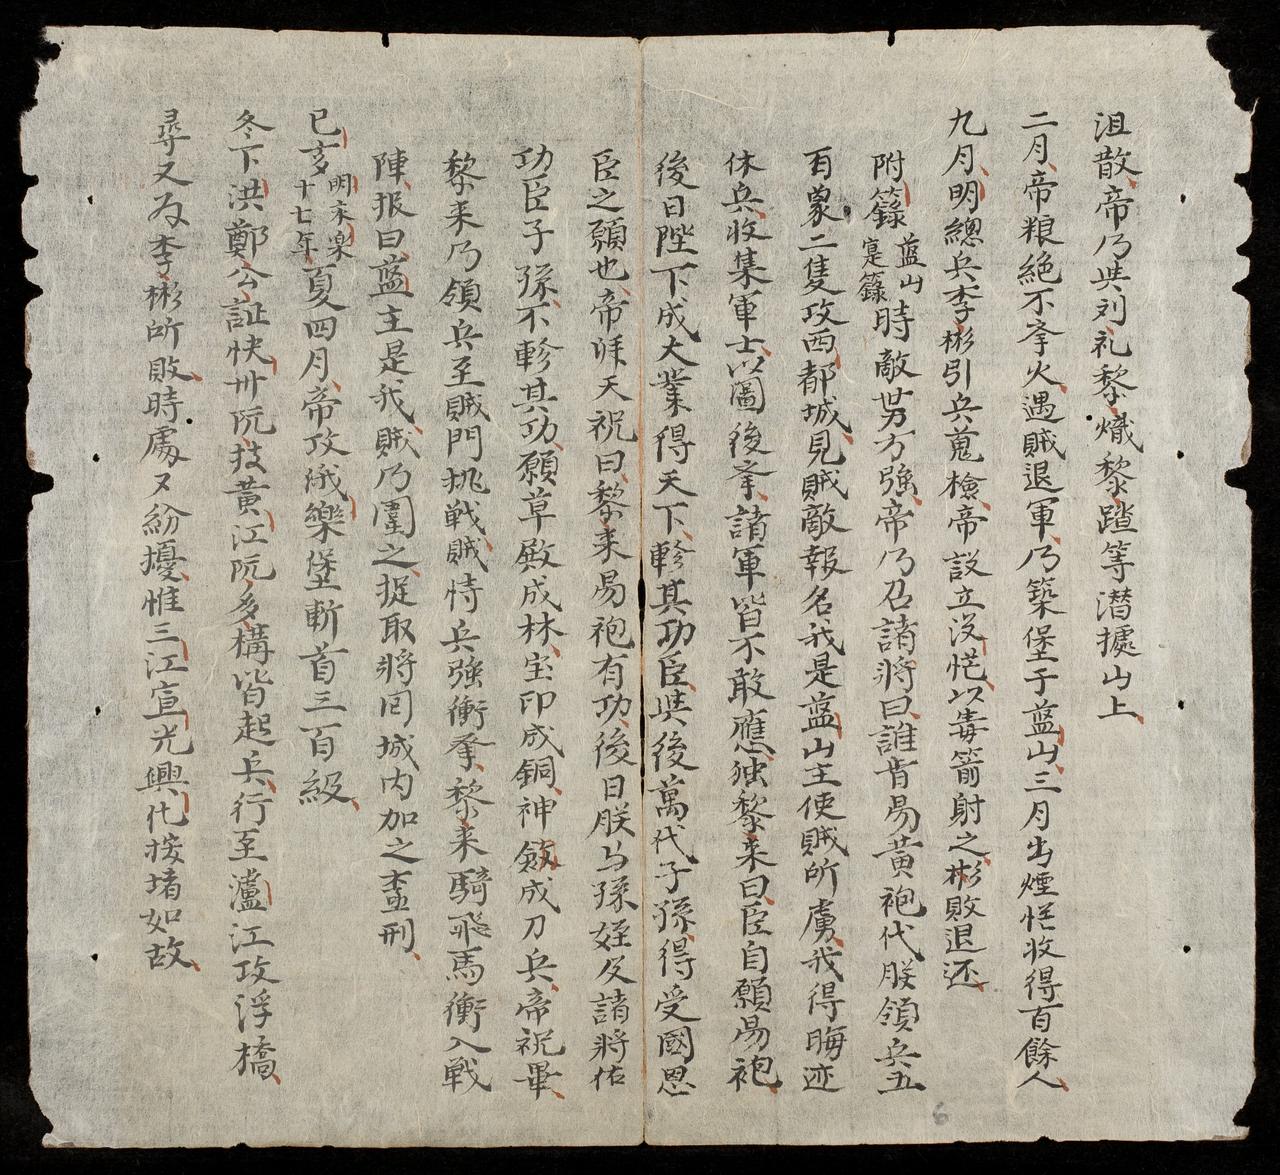 沮散帝乃与刘礼黎熾黎踏等潜據山上
二月帝粮絶不举火遇賊退軍乃築堡于藍山三月出煙恾收得百餘人
九月明總兵李彬引兵蒐檢帝設立没恾以毒箭射之彬敗退还
附籙藍山寔籙時敵势方強帝乃召諸將曰誰肯易黃袍代朕領兵五
百象二隻攻西都城見賊敵報名我是藍山主使賊所虜我得晦迹
休兵收集軍士以圖後举諸軍皆不敢應独黎来曰臣自願易袍
後日陛下成大業得天下軫其功臣與後萬代子孫得受國恩
臣之願也帝拜天祝曰黎来易袍有功後日朕与孫姪及諸將佑
功臣子孫不軫其功願草殿成林宝印成銅神劍成刀兵帝祝畢
黎来乃領兵至賊門挑戦賊恃兵強衝夆黎来騎飛馬衝入戦
陣报曰藍主是我賊乃圍之捉取將囘城内加之盍刑
己亥明永楽十七年夏四月帝攻哦樂堡斬首三百級
冬下洪鄭公証快卅阮技黄江阮多構皆起兵行至瀘江攻浮橋
尋又为李彬所敗時處又紛擾惟三江宣光興化按堵如故